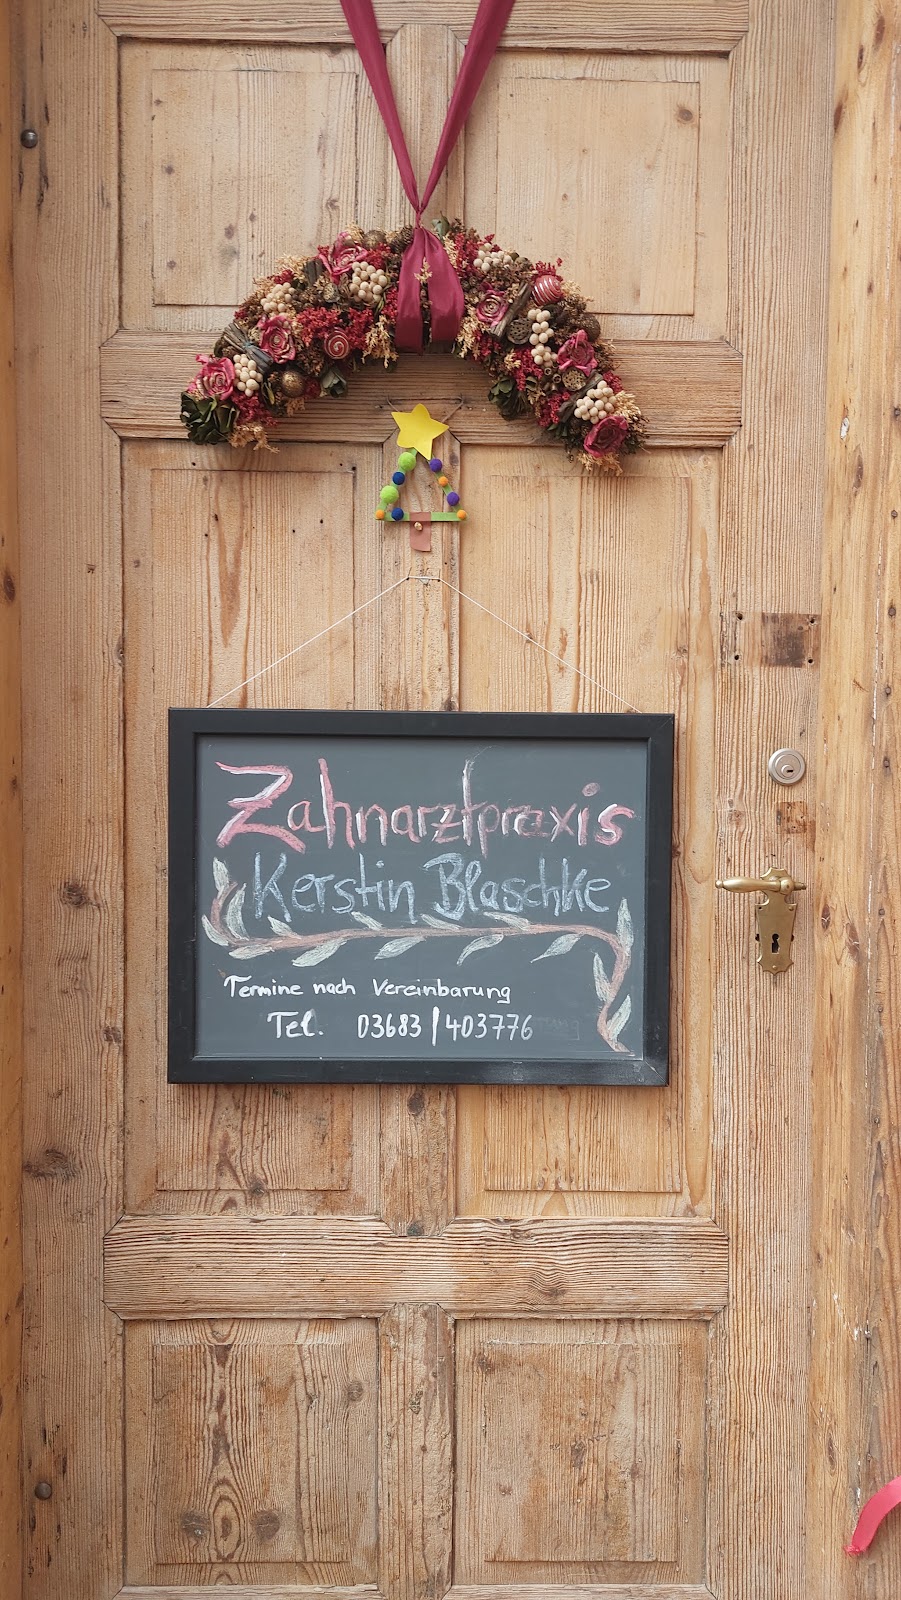 Zahnarztpraxis
Kerstin Blaschke
Termine nach Vereinbarung
Tel. 03683/403776